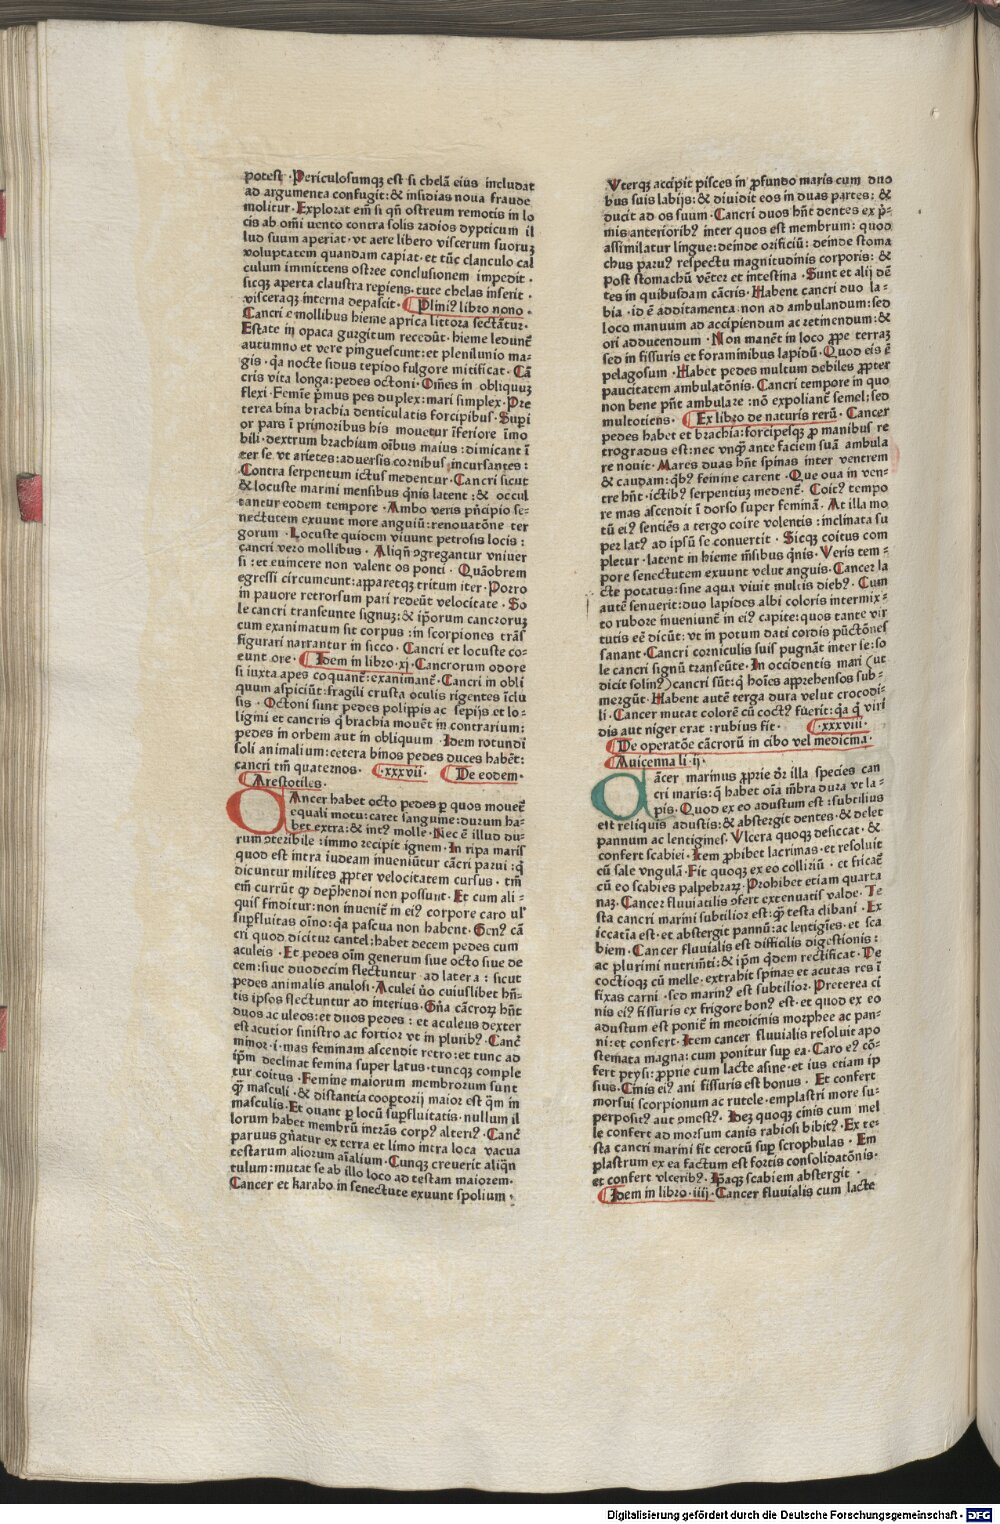 potest · Periculosumqꝫ est si chelā eius includat
ad argumenta confugit: & insidias noua fraude
molitur · Explorat em̄ si qn̄ ostreum remotis in lo
cis ab om̄i uento contra solis radios dypticum il
lud suum aperiat · vt aere libero viscerum suoruꝫ
voluptatem quandam capiat · et tūc clanculo cal
culum immittens ostree conclusionem impedit ·
sicqꝫ aperta claustra repiens · tute chelas inserit ·
visceraqꝫ interna depascit · ¶ Pliniꝰ libro nono ·
Cancri e mollibus hieme aprica littora sectātur ·
Estate in opaca gurgitum recedūt · hieme leduntᷣ
autumno et vere pinguescunt: et plenilunio ma-
gis · qa nocte sidus tepido fulgore mitificat · Cā
cris vita longa: pedes octoni · Om̄es in obliquuꝫ
flexi · Femīe pͥmus pes duplex: mari simplex · Pre
terea bina brachia denticulatis forcipibus · Supi
or pars ī primoribus his mouetur īferiore īmo
bili · dextrum brachium oībus maius: dimicant ī
ter se vt arietes: aduersis cornibus incursantes:
Contra serpentum ictus medentur · Cancri sicut
& locuste marini mensibus qͥnis latent: & occul
tantur eodem tempore · Ambo veris pͥncipio se-
nectutem exuunt more anguiū: renouatōne ter
gorum · Locuste quidem viuunt petrosis locis:
cancri vero mollibus · Aliqn̄ ↄgregantur vniuer
si: et euincere non valent os ponti · Quāobrem
egressi circumeunt: apparetqꝫ tritum iter · Porro
in pauore retrorsum pari redeūt velocitate · So
le cancri transeunte signuꝫ: & ip̄orum cancroruꝫ
cum exanimatum sit corpus: in scorpiones trās
figurari narrantur in sicco · Cancri et locuste co-
eunt ore · ¶ Idem in libro · xj · Cancrorum odore
si iuxta apes coquantᷣ: exanimantᷣ · Cancri in obli
quum aspiciūt: fragili crusta oculis rigentes īclu
sis · Octoni sunt pedes polippis ac sepijs et lo-
ligini et cancris qͥ brachia mouēt in contrarium:
pedes in orbem aut in obliquum · Idem rotundi
soli animalium: cetera binos pedes duces habēt:
cancri tm̄ quaternos · ¶ · xxxvii · ¶ De eodem ·
¶ Arestotiles ·
CAncer habet octo pedes ꝑ quos mouetᷣ
equali motu: caret sanguine: durum ha-
bet extra: & intꝰ molle · Nec ē illud du-
rum ↄteribile: immo recipit ignem · In ripa maris
quod est intra iudeam inueniūtur cācri parui: qͥ
dicuntur milites ꝓpter velocitatem cursus · tm̄
em̄ currūt qꝫ dep̄hendi non possunt · Et cum ali-
quis finditur: non inuenitᷣ in eiꝰ corpore caro ulˀ
suꝑfluitas oīno: qa pascua non habent · Genꝰ cā
cri quod dicitur cantel: habet decem pedes cum
aculeis · Et pedes oīm generum siue octo siue de
cem: siue duodecim flectuntur ad latera: sicut
pedes animalis anulosi · Aculei ūo cuiuslibet hn̄-
tis ip̄sos flectuntur ad interius · Oīa cācroꝝ hn̄t
duos aculeos: et duos pedes: et aculeus dexter
est acutior sinistro ac fortior vt in pluribꝰ · Cancᷣ
minor · i · mas feminam ascendit retro: et tunc ad
ip̄m declinat femina super latus · tuncqꝫ comple
tur coitus · Femine maiorum membrorum sunt
qͣꝫ masculi · & distantia cooꝑtorij maior est qͣm in
masculis · Et ouant ꝑ locū suꝑfluitatis · nullum il
lorum habet membrū intrās corpꝰ alteriꝰ · Cancᷣ
paruus gn̄atur ex terra et limo intra loca vacua
testarum aliorum aīalium · Cunqꝫ creuerit aliqn̄
tulum: mutat se ab illo loco ad testam maiorem ·
Cancer et karabo in senectute exuunt spolium ·
Vterqꝫ accipit pisces in ꝓfundo maris cum duo
bus suis labijs: & diuidit eos in duas partes: &
ducit ad os suum · Cancri duos hn̄t dentes ex pͥ-
mis anterioribꝰ inter quos est membrum: quod
assimilatur lingue: deinde orificiū: deinde stoma
chus paruꝰ respectu magnitudinis corporis: &
post stomachū vēter et intestina · Sunt et alij dē
tes in quibusdam cācris · Habent cancri duo la-
bia · id ē additamenta non ad ambulandum: sed
loco manuum ad accipiendum ac retinendum: &
ori adducendum · Non manēt in loco ꝓpe terraꝫ
sed in fissuris et foraminibus lapidū · Quod eis ē
pelagosum · Habet pedes multum debiles ꝓpter
paucitatem ambulatōnis · Cancri tempore in quo
non bene pn̄t ambulare: nō expoliantᷣ semel: sed
multotiens · ¶ Ex libro de naturis rerū · Cancer
pedes habet et brachia: forcipesqꝫ ꝓ manibus re
trogradus est: nec vnqͣꝫ ante faciem suā ambula
re nouit · Mares duas hn̄t spinas inter ventrem
& caudam: qͥbꝰ femine carent · Que oua in ven-
tre hn̄t · ictibꝰ serpentiuꝫ medentᷣ · Coitꝰ tempo
re mas ascendit ī dorso super feminā · At illa mo
tū eiꝰ sentiēs a tergo coire volentis: inclinata su
per latꝰ ad ipsū se conuertit · Sicqꝫ coitus com
pletur · latent in hieme m̄sibus qͥnis · Veris tem-
pore senectutem exuunt velut anguis · Cancer la
cte potatus: sine aqua viuit multis diebꝰ · Cum
autē senuerit: duo lapides albi coloris intermix-
to rubore inueniuntᷣ in eiꝰ capite: quos tante vir
tutis eē dicūt: vt in potum dati cordis pūctōnes
sanant · Cancri corniculis suis pugnāt inter se: so
le cancri signū transeūte · In occidentis mari (ut
dicit solinꝰ) cancri sūt: qͥ hoīes apprehensos sub-
mergūt · Habent autē terga dura velut crocodi-
li · Cancer mutat colorē cū coctꝰ fuerit: qa qͥ viri
dis aut niger erat: rubius fit · ¶ · xxxviii ·
¶ De operatōe cācrorū in cibo vel medicina ·
¶ Auicenna li · ij ·
CAncer marinus ꝓprie dr̄ illa species can
cri maris: qͥ habet oīa m̄bra dura vt la-
pis · Quod ex eo adustum est: subtilius
est reliquis adustis: & abstergit dentes · & delet
pannum ac lentigines · Vlcera quoqꝫ desiccat · &
confert scabiei · Item ꝓhibet lacrimas · et resoluit
cū sale vngulā · Fit quoqꝫ ex eo colliriū · et fricatᷣ
cū eo scabies palpebraꝝ · Prohibet etiam quarta
naꝫ · Cancer fluuiatilis ↄfert extenuatis valde · Te
sta cancri marini subtilior est: qͣꝫ testa clibani · Ex
iccatīa est · et abstergit pannū: ac lentigīes · et sca
biem · Cancer fluuialis est difficilis digestionis:
ac plurimi nutrim̄ti: & ip̄m qͥdem rectificat · De
coctioqꝫ cū melle · extrahit spinas et acutas res ī
fixas carni · sed marinꝰ est subtilior · Preterea ci
nis eiꝰ fissuris ex frigore bonꝰ est · et quod ex eo
adustum est ponitᷣ in medicinis morphee ac pan-
ni: et confert · Item cancer fluuialis resoluit apo
stemata magna: cum ponitur suꝑ ea · Caro eꝰ cō-
fert ptysi: ꝓprie cum lacte asine · et ius etiam ip
sius · Cinis eiꝰ ani fissuris est bonus · Et confert
morsui scorpionum ac rutele · emplastri more su-
perpositꝰ aut ↄmestꝰ · Ideꝫ quoqꝫ cinis cum mel
le confert ad morsum canis rabiosi bibitꝰ · Ex te-
sta cancri marini fit cerotū suꝑ scrophulas · Em
plastrum ex ea factum est fortis consolidatōnis ·
et confert vlceribꝰ · Ip̄aqꝫ scabiem abstergit ·
¶ Idem in libro · iiij · Cancer fluuialis cum lacte
Digitalisierung gefördert durch die Deutsche Forschungsgemeinschaft - DFG